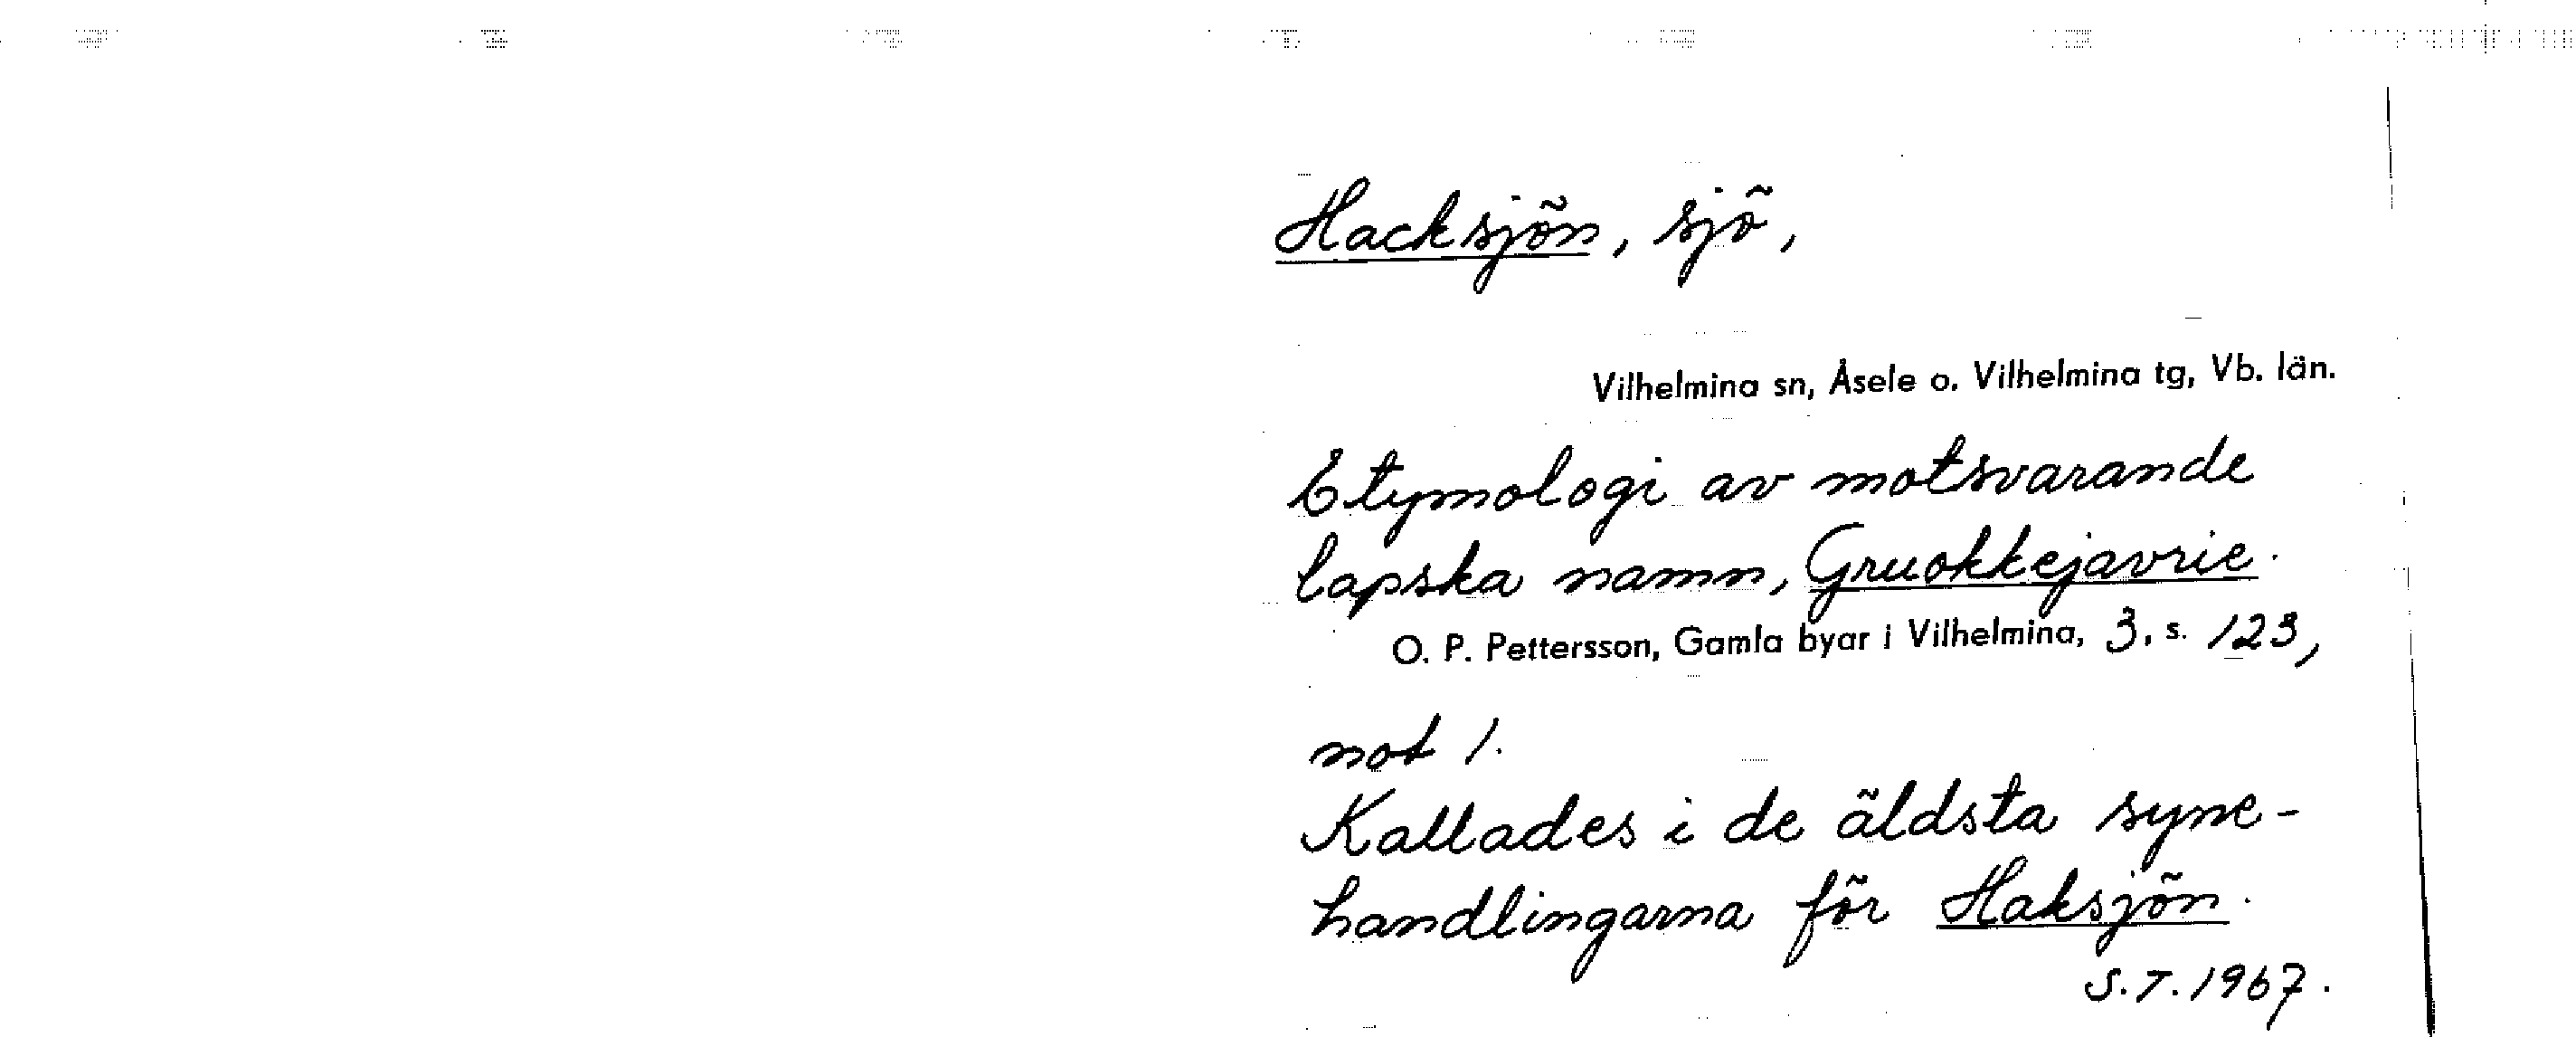 Hacksjön, sjö,
Vilhelmina sn, Åsele o. Vilhelmina tg, Vb. län.
Etymologi av motsvarande
lapska namn, Gruokkejavrie.
O. P. Pettersson, Gamla byar i Vilhelmina, 3, s. 123,
not 1.
Kallades i de äldsta syne-
handlingarna för Haksjön.
S.T. 1967.